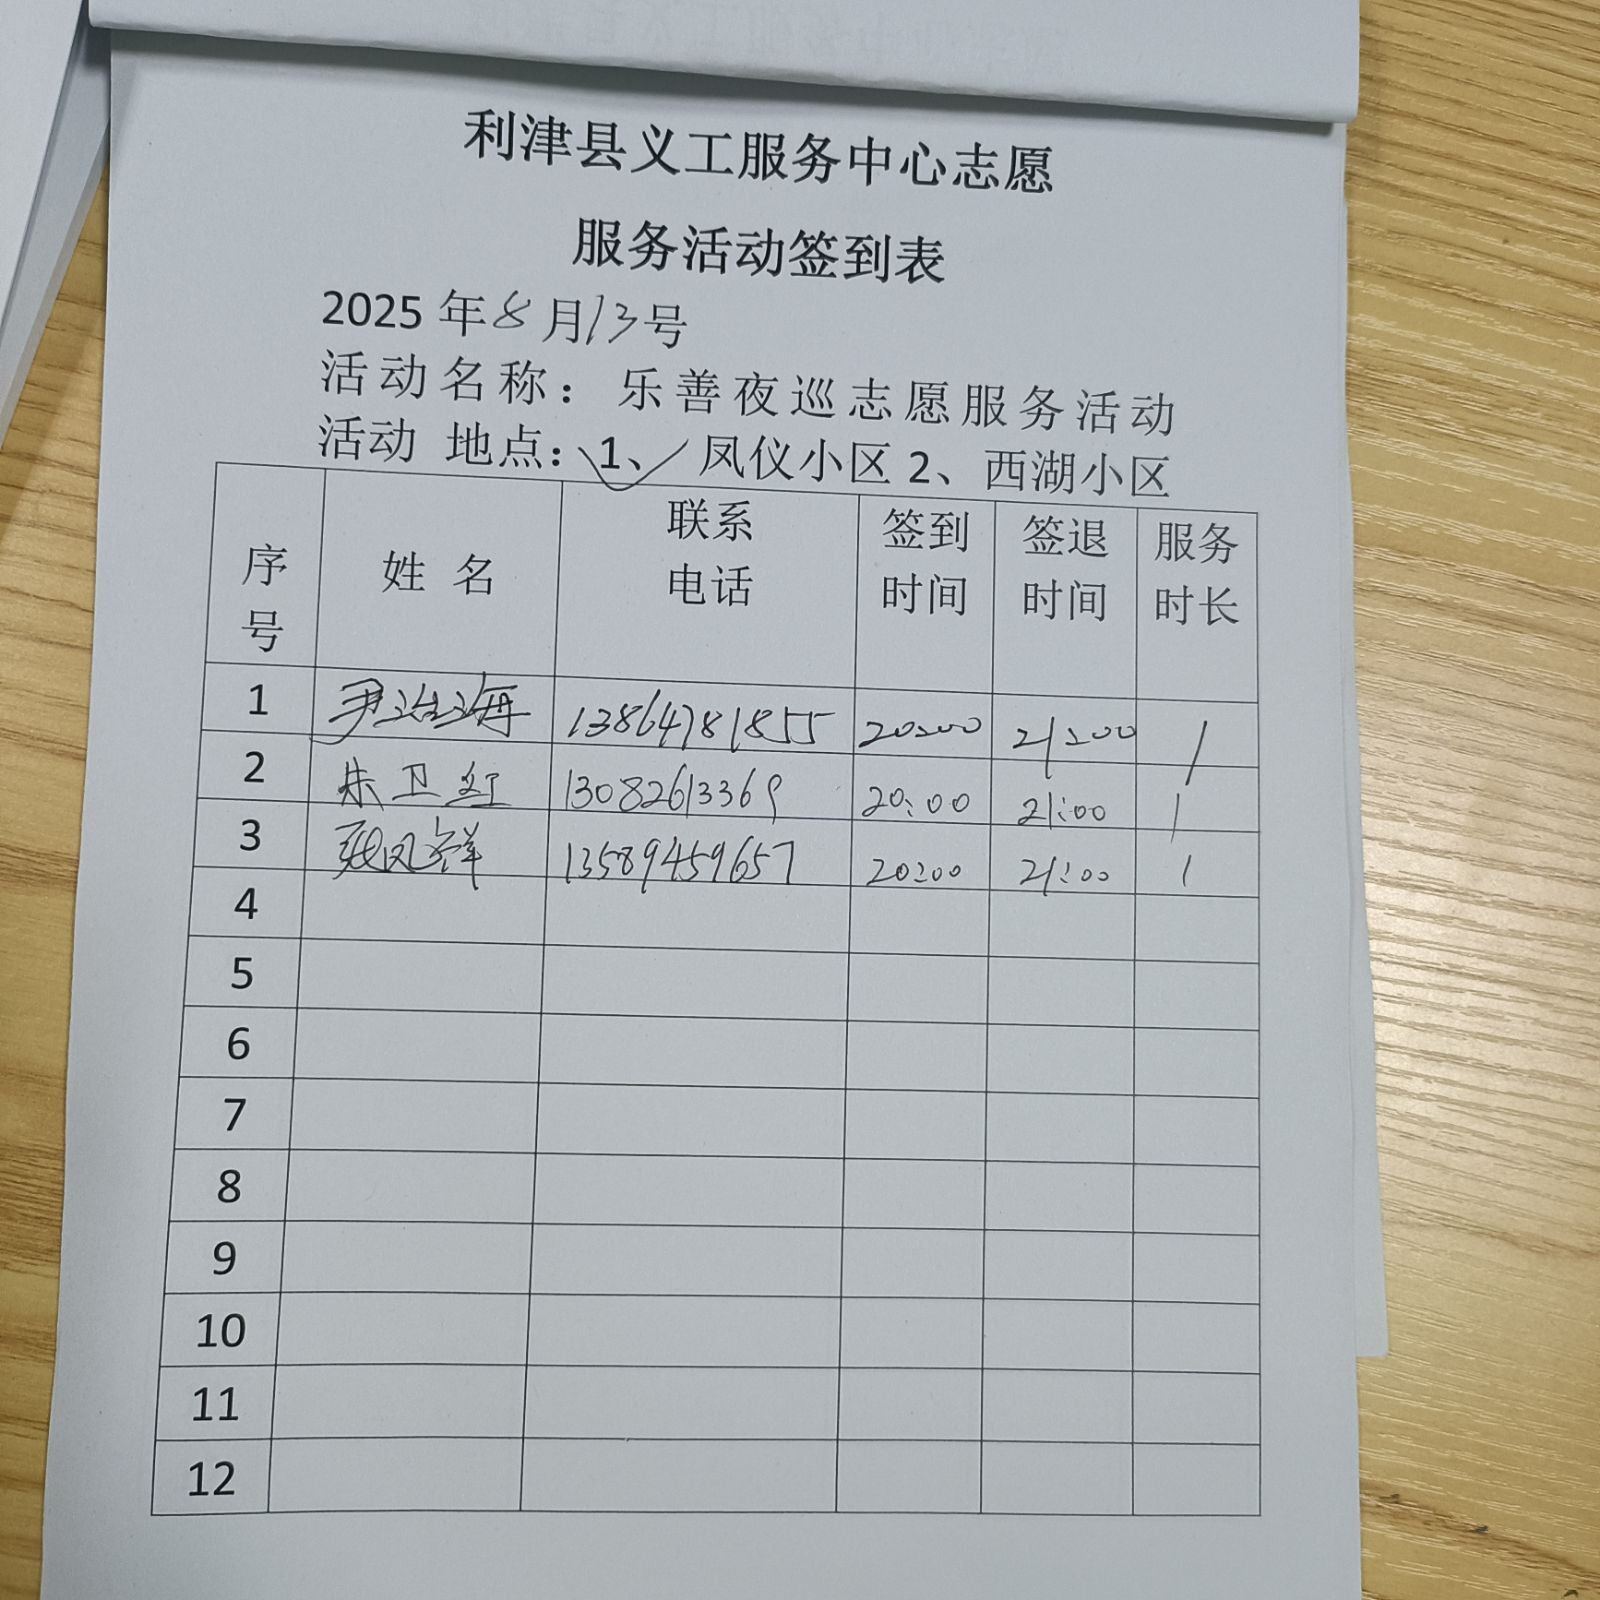 利津县义工服务中心志愿
服务活动签到表
2025年8月13号
活动名称：乐善夜巡志愿服务活动
活动 地点：1、凤仪小区2、西湖小区
序号 姓名 联系电话 签到时间 签退时间 服务时长
1 尹海 13864781855 20:00 21:00 1
2 朱卫红 13082613369 20:00 21:00 1
3 张凤祥 13589459657 20:00 21:00 1
4
5
6
7
8
9
10
11
12